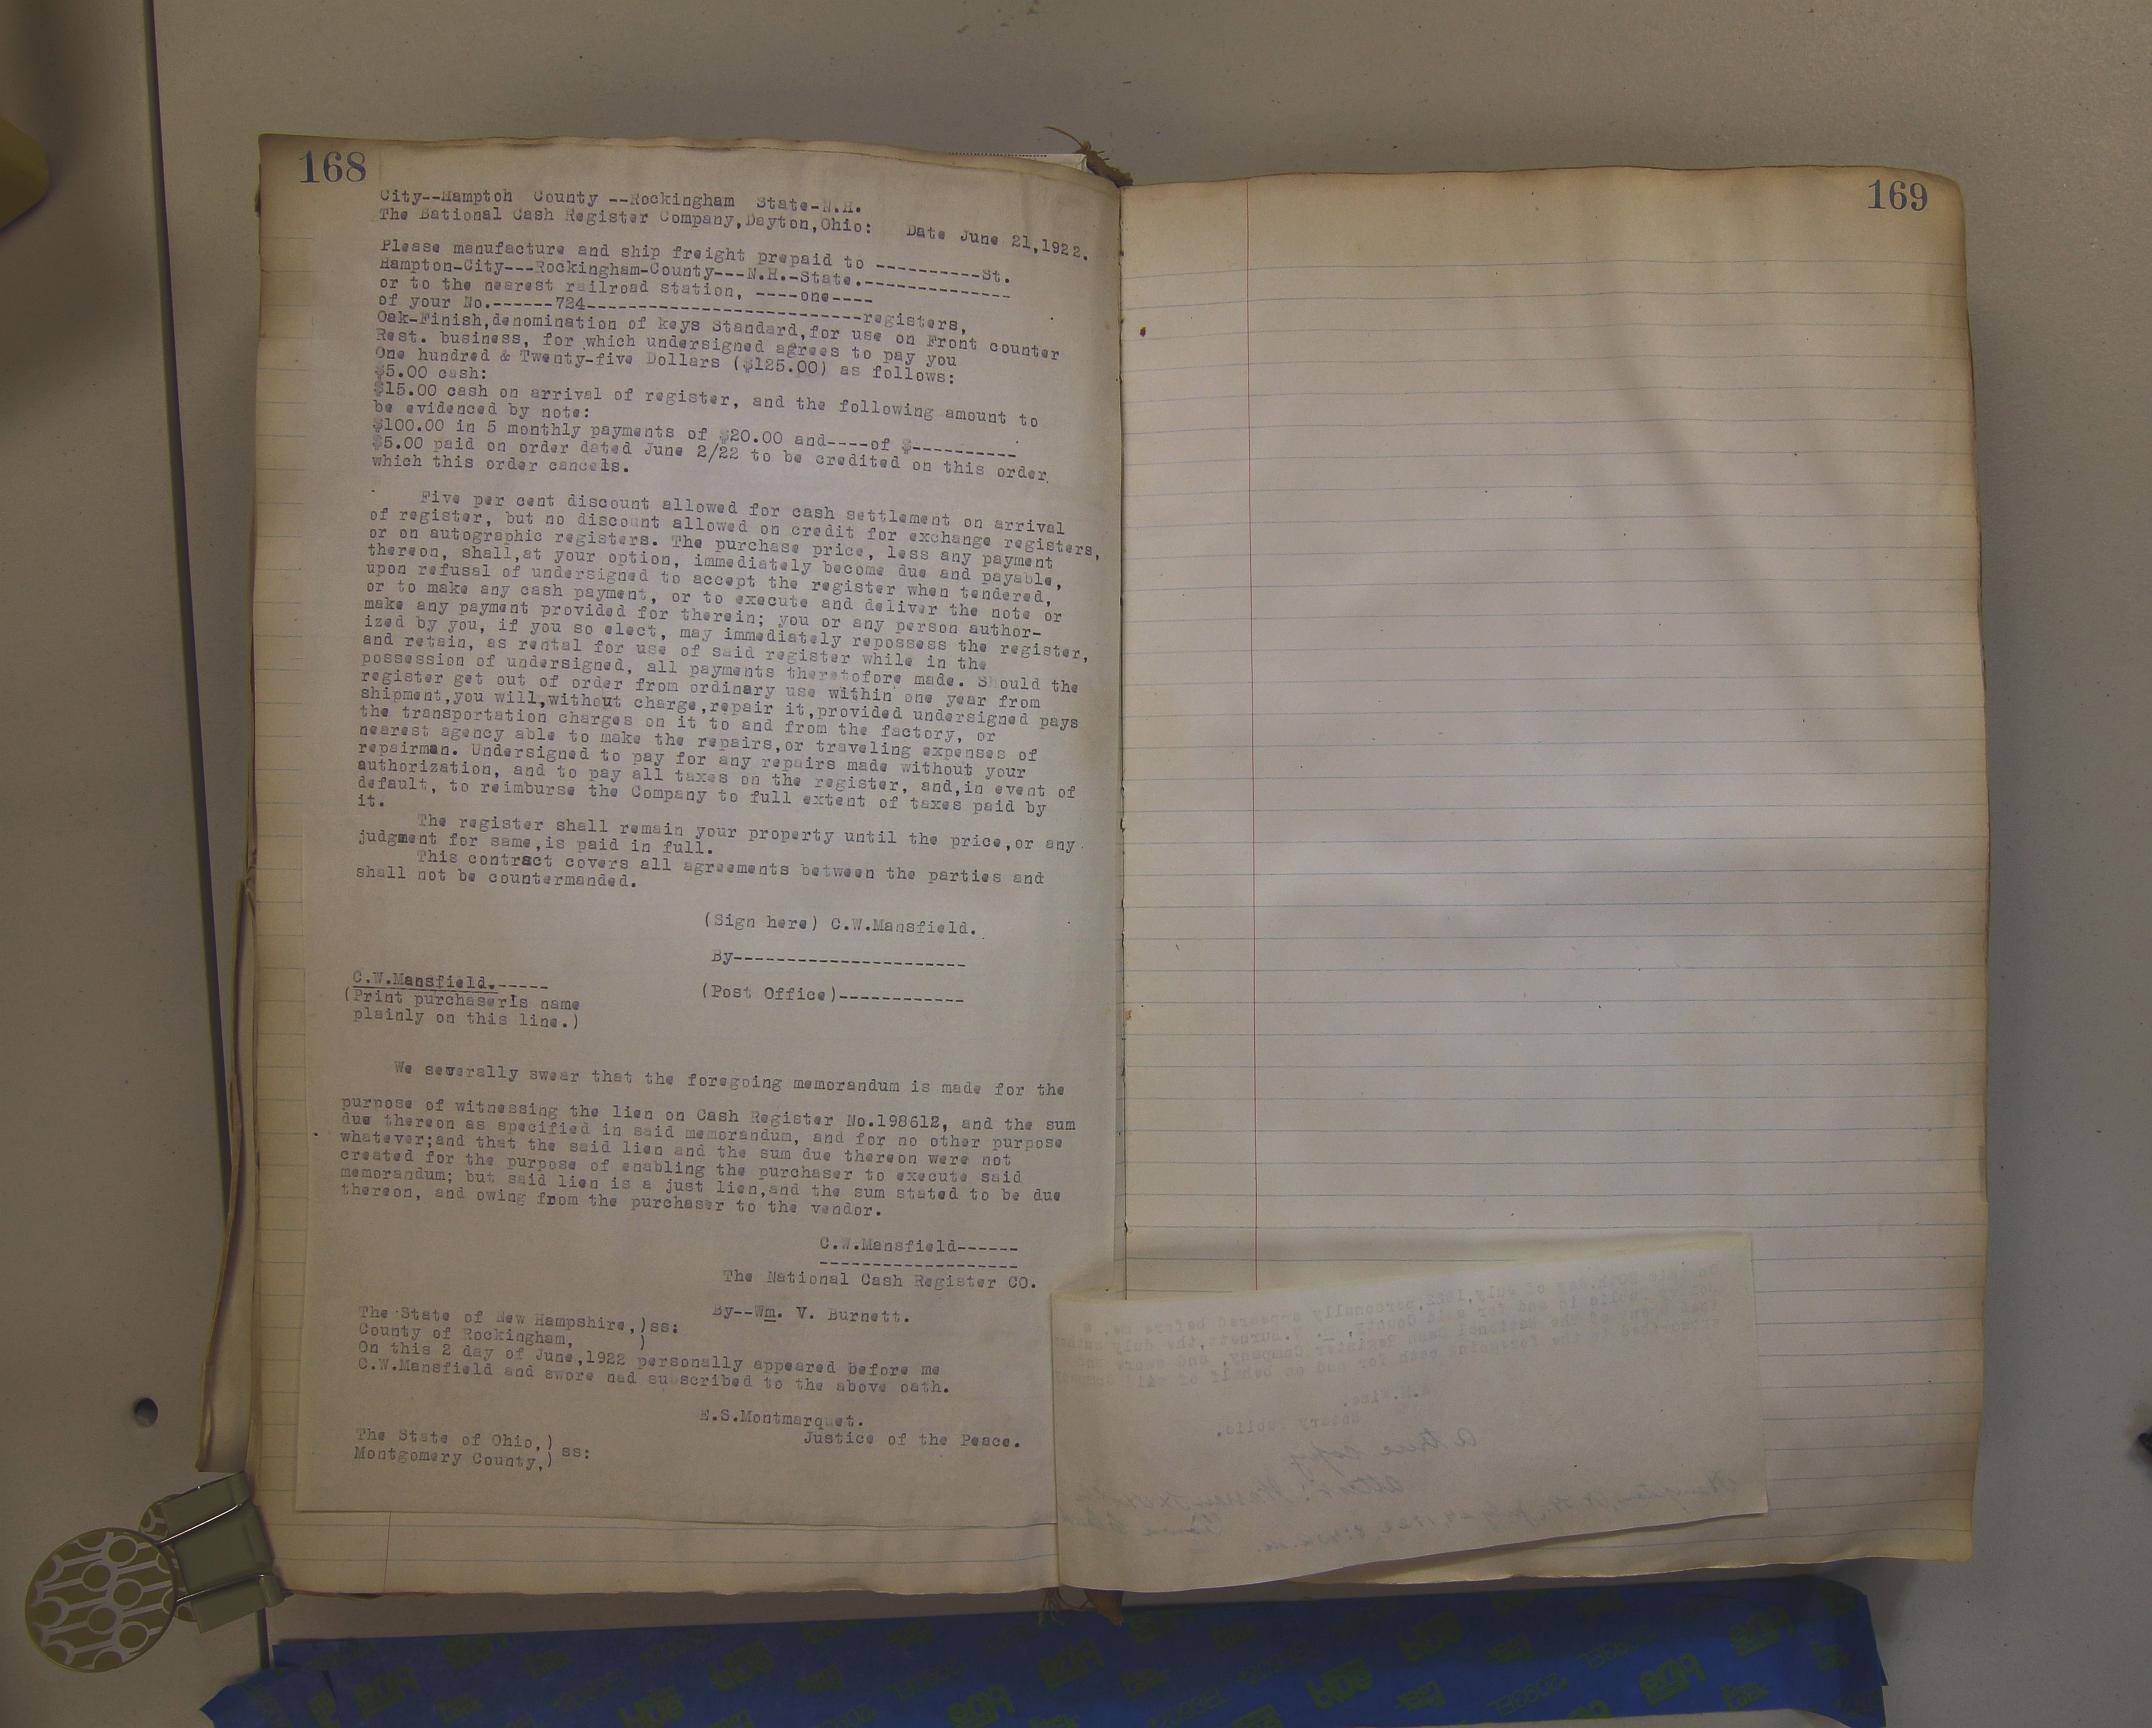 168
City--Hampton County --Rockingham State-N.H.
The Bational Cash Register Company,Dayton,Ohio: Date June 21,1922.
Please manufacture and ship freight prepaid to ----------St.
Hampton-City---Rockingham-County---N.H.-State.--------------
or to the nearest railroad station, ----one----
of your No.------724--------------------------registers,
Oak-Finish,denomination of keys Standard,for use on Front counter
Rest. business, for which undersigned agrees to pay you
One hundred & Twenty-five Dollars ($125.00) as follows:
$5.00 cash:
$15.00 cash on arrival of register, and the following amount to
be evidenced by note:
$100.00 in 5 monthly payments of $20.00 and----of $----------
$5.00 paid on order dated June 2/22 to be credited on this order
which this order cancels.
Five per cent discount allowed for cash settlement on arrival
of register, but no discount allowed on credit for exchange registers,
or on autographic registers. The purchase price, less any payment
thereon, shall,at your option, immediately become due and payable,
upon refusal of undersigned to accept the register when tendered,
or to make any cash payment, or to execute and deliver the note or
make any payment provided for therein; you or any person author-
ized by you, if you so elect, may immediately repossess the register,
and retain, as rental for use of said register while in the
possession of undersigned, all payments theretofore made. Should the
register get out of order from ordinary use within one year from
shipment,you will,without charge,repair it,provided undersigned pays
the transportation charges on it to and from the factory, or
nearest agency able to make the repairs,or traveling expenses of
repairman. Undersigned to pay for any repairs made without your
authorization, and to pay all taxes on the register, and,in event of
default, to reimburse the Company to full extent of taxes paid by
it.
The register shall remain your property until the price,or any
judgment for same,is paid in full.
This contract covers all agreements between the parties and
shall not be countermanded.
(Sign here) C.W.Mansfield.
By----------------------
C.W.Mansfield.-----
(Print purchaserIs name
plainly on this line.)
(Post Office)------------
We severally swear that the foregoing memorandum is made for the
purpose of witnessing the lien on Cash Register No.198612, and the sum
due thereon as specified in said memorandum, and for no other purpose
whatever;and that the said lien and the sum due thereon were not
created for the purpose of enabling the purchaser to execute said
memorandum; but said lien is a just lien,and the sum stated to be due
thereon, and owing from the purchaser to the vendor.
C.W.Mansfield------
-------------------
The National Cash Register CO.
By--Wm. V. Burnett.
The State of New Hampshire,)ss:
County of Rockingham, )
On this 2 day of June,1922 personally appeared before me
C.W.Mansfield and swore nad subscribed to the above oath.
E.S.Montmarquet.
Justice of the Peace.
The State of Ohio,)
Montgomery County,) ss:
169